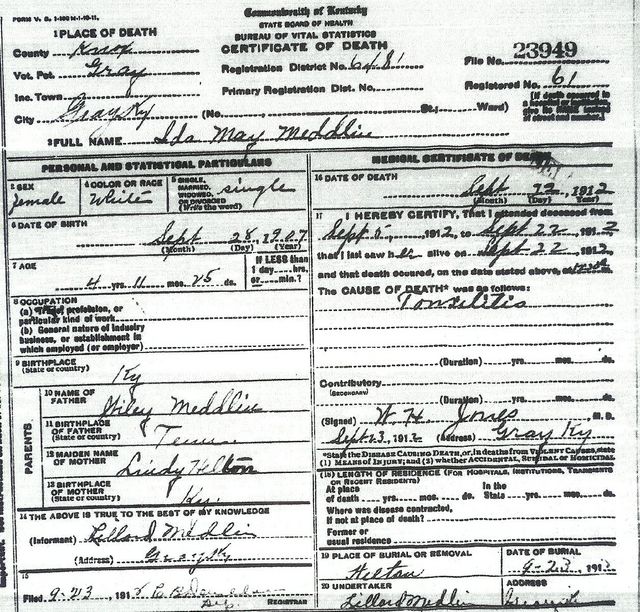 FORM V. S. 1-100 M-1-10-11.
Commonwealth of Kentucky
STATE BOARD OF HEALTH
BUREAU OF VITAL STATISTICS
CERTIFICATE OF DEATH
1 PLACE OF DEATH
County Knox
Vot. Pct. Gray
Inc. Town
City Gray Ky (No. St.; Ward)
Registration District No. 6481
Primary Registration Dist. No.
File No. 23949
Registered No. 61
(If death occured in
a hospital or institution,
give its NAME instead
of street and number.)
2 FULL NAME Ida May Meddlin
PERSONAL AND STATISTICAL PARTICULARS
3 SEX
female
4 COLOR OR RACE
White
5 SINGLE,
MARRIED,
WIDOWED,
OR DIVORCED
(Write the word)
single
6 DATE OF BIRTH
Sept 28, 1907
(Month) (Day) (Year)
7 AGE
4 yrs. 11 mos. 25 ds.
If LESS than
1 day hrs.
or min.?
8 OCCUPATION
(a) Trade, profession, or
particular kind of work
(b) General nature of industry
business, or establishment in
which employed (or employer)
9 BIRTHPLACE
(State or country)
Ky
PARENTS
10 NAME OF
FATHER
Wiley Meddlin
11 BIRTHPLACE
OF FATHER
(State or country)
Tenn.
12 MAIDEN NAME
OF MOTHER
Lindy Helton
13 BIRTHPLACE
OF MOTHER
(State or country)
Ky.
14 THE ABOVE IS TRUE TO THE BEST OF MY KNOWLEDGE
(Informant) Lillard Medlin
(Address) Gray Ky
15
Filed 9-23, 191
REGISTRAR
MEDICAL CERTIFICATE OF DEATH
16 DATE OF DEATH
Sept 22, 1912
(Month) (Day) (Year)
17 I HEREBY CERTIFY, That I attended deceased from
Sept 5, 1912, to Sept 22, 1912
that I last saw her alive on Sept 22, 1912
and that death occured, on the date stated above, at
The CAUSE OF DEATH* was as follows:
Tonsilitis
(Duration) yrs. mos. ds.
Contributory
(SECONDARY)
(Duration) yrs. mos. ds.
(Signed) W H Jones M. D.
Sept 23, 1912 (Address) Gray Ky
*State the DISEASE CAUSING DEATH, or, in deaths from VIOLENT CAUSES, state
(1) MEANS OF INJURY; and (2) whether ACCIDENTAL, SUICIDAL OR HOMICIDAL
(18) LENGTH OF RESIDENCE (FOR HOSPITALS, INSTITUTIONS, TRANSIENTS
OR RECENT RESIDENTS)
At place
of death yrs. mos. ds.
In the
State yrs. mos. ds.
Where was disease contracted,
if not at place of death?
Former or
usual residence
19 PLACE OF BURIAL OR REMOVAL
Helton
DATE OF BURIAL
9-23, 191
20 UNDERTAKER
Lillard Medlin
ADDRESS